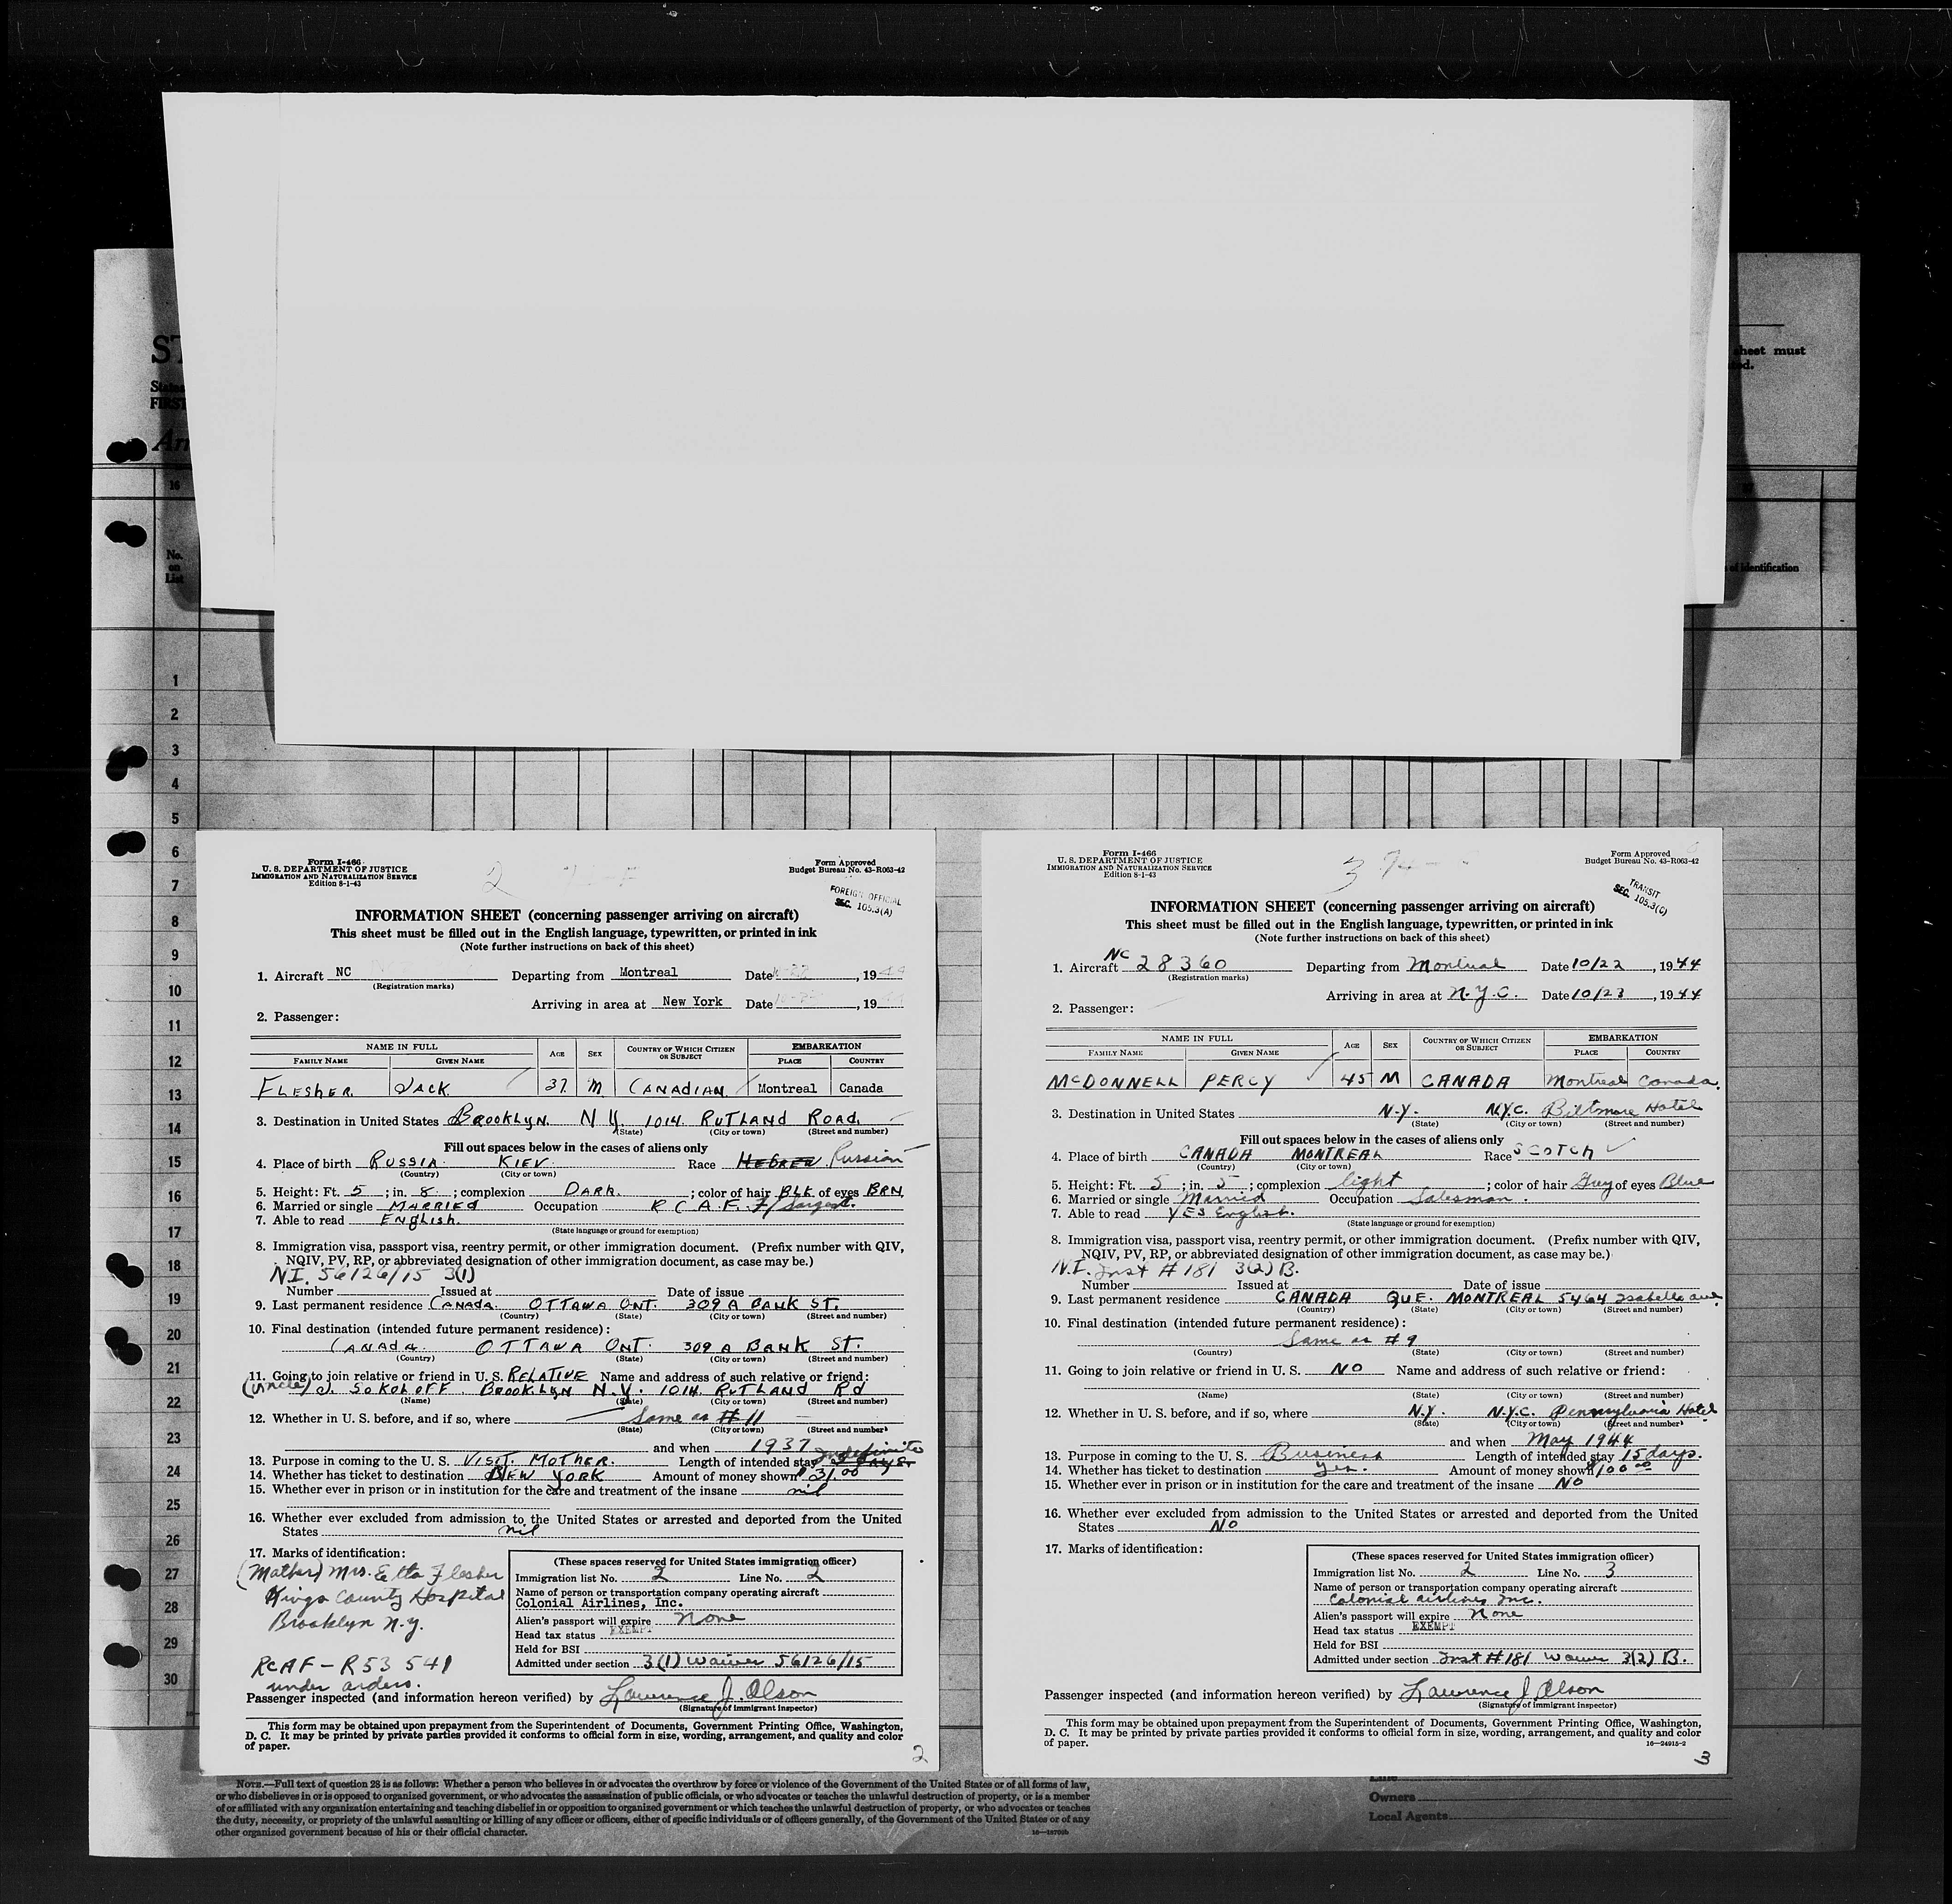 ST
States
FIRST
An
sheet must
ed.
16
No.
on
List
of identification
1
2
3
4
5
6
7
8
9
10
11
12
13
14
15
16
17
18
19
20
21
22
23
24
25
26
27
28
29
30
Form I-466
U. S. DEPARTMENT OF JUSTICE
IMMIGRATION AND NATURALIZATION SERVICE
Edition 8-1-43
2
Form Approved
Budget Bureau No. 43-R063-42
FOREIGN OFFICIAL
SEC. 105.3(A)
INFORMATION SHEET (concerning passenger arriving on aircraft)
This sheet must be filled out in the English language, typewritten, or printed in ink
(Note further instructions on back of this sheet)
1. Aircraft NC Departing from Montreal Date 10-22, 1944
(Registration marks)
Arriving in area at New York Date , 19
2. Passenger:
NAME IN FULL AGE SEX COUNTRY OF WHICH CITIZEN OR SUBJECT EMBARKATION
FAMILY NAME GIVEN NAME PLACE COUNTRY
FLESHER JACK 37 M CANADIAN Montreal Canada
3. Destination in United States BROOKLYN. N.Y. 1014 RUTLAND ROAD.
(State) (City or town) (Street and number)
Fill out spaces below in the cases of aliens only
4. Place of birth RUSSIA KIEV. Race HEBREW Russian
(Country) (City or town)
5. Height: Ft. 5; in. 8; complexion DARK.; color of hair BLK of eyes BRN
6. Married or single MARRIED Occupation R C A. F. F/Sargent.
7. Able to read English.
(State language or ground for exemption)
8. Immigration visa, passport visa, reentry permit, or other immigration document. (Prefix number with QIV,
NQIV, PV, RP, or abbreviated designation of other immigration document, as case may be.)
N.I. 56126/15 3(1)
Number Issued at Date of issue
9. Last permanent residence CANADA. OTTAWA ONT. 309 A BANK ST.
(Country) (State) (City or town) (Street and number)
10. Final destination (intended future permanent residence):
CANADA. OTTAWA ONT. 309 A BANK ST.
(Country) (State) (City or town) (Street and number)
11. Going to join relative or friend in U. S. RELATIVE Name and address of such relative or friend:
(Uncle) J. SOKOLOFF. BROOKLYN N.Y. 1014 RUTLAND Rd
(Name) (State) (City or town) (Street and number)
12. Whether in U. S. before, and if so, where Same as # 11
(State) (City or town) (Street and number)
and when 1937
13. Purpose in coming to the U. S. VISIT. MOTHER. Length of intended stay Indefinite
14. Whether has ticket to destination NEW YORK Amount of money shown $31.00
15. Whether ever in prison or in institution for the care and treatment of the insane nil
16. Whether ever excluded from admission to the United States or arrested and deported from the United
States nil
17. Marks of identification:
(Mother) Mrs. Etta Flesher
Kings County Hospital
Brooklyn N.Y.
RCAF-R53 541
under orders.
(These spaces reserved for United States immigration officer)
Immigration list No. 2 Line No. 2
Name of person or transportation company operating aircraft
Colonial Airlines, Inc.
Alien's passport will expire None
Head tax status EXEMPT
Held for BSI
Admitted under section 3(1) waiver 56126/15
Passenger inspected (and information hereon verified) by Lawrence J. Olson
(Signature of immigrant inspector)
This form may be obtained upon prepayment from the Superintendent of Documents, Government Printing Office, Washington,
D. C. It may be printed by private parties provided it conforms to official form in size, wording, arrangement, and quality and color
of paper.
2
Form I-466
U. S. DEPARTMENT OF JUSTICE
IMMIGRATION AND NATURALIZATION SERVICE
Edition 8-1-43
3
Form Approved
Budget Bureau No. 43-R063-42
TRANSIT
SEC. 105.3(C)
INFORMATION SHEET (concerning passenger arriving on aircraft)
This sheet must be filled out in the English language, typewritten, or printed in ink
(Note further instructions on back of this sheet)
1. Aircraft NC 28360 Departing from Montreal Date 10/22, 1944
(Registration marks)
Arriving in area at N.Y.C. Date 10/23, 1944
2. Passenger:
NAME IN FULL AGE SEX COUNTRY OF WHICH CITIZEN OR SUBJECT EMBARKATION
FAMILY NAME GIVEN NAME PLACE COUNTRY
McDONNELL PERCY 45 M CANADA Montreal Canada.
3. Destination in United States N.Y. N.Y.C. Biltmore Hotel
(State) (City or town) (Street and number)
Fill out spaces below in the cases of aliens only
4. Place of birth CANADA MONTREAL Race SCOTCH
(Country) (City or town)
5. Height: Ft. 5; in. 5; complexion light; color of hair Grey of eyes Blue
6. Married or single Married Occupation Salesman.
7. Able to read YES English.
(State language or ground for exemption)
8. Immigration visa, passport visa, reentry permit, or other immigration document. (Prefix number with QIV,
NQIV, PV, RP, or abbreviated designation of other immigration document, as case may be.)
N.I. Inst # 181 3(2) B.
Number Issued at Date of issue
9. Last permanent residence CANADA QUE. MONTREAL 5464 Isabella ave.
(Country) (State) (City or town) (Street and number)
10. Final destination (intended future permanent residence):
Same as # 9
(Country) (State) (City or town) (Street and number)
11. Going to join relative or friend in U. S. NO Name and address of such relative or friend:
(Name) (State) (City or town) (Street and number)
12. Whether in U. S. before, and if so, where N.Y. N.Y.C. Pennsylvania Hotel
(State) (City or town) (Street and number)
and when May 1944
13. Purpose in coming to the U. S. Business Length of intended stay 15 days.
14. Whether has ticket to destination Yes. Amount of money shown $100.00
15. Whether ever in prison or in institution for the care and treatment of the insane NO
16. Whether ever excluded from admission to the United States or arrested and deported from the United
States NO
17. Marks of identification:
(These spaces reserved for United States immigration officer)
Immigration list No. 2 Line No. 3
Name of person or transportation company operating aircraft
Colonial airlines Inc.
Alien's passport will expire None
Head tax status EXEMPT
Held for BSI
Admitted under section Inst # 181 Waiver 3(2) B.
Passenger inspected (and information hereon verified) by Lawrence J. Olson
(Signature of immigrant inspector)
This form may be obtained upon prepayment from the Superintendent of Documents, Government Printing Office, Washington,
D. C. It may be printed by private parties provided it conforms to official form in size, wording, arrangement, and quality and color
of paper.
16—24915-2
3
NOTE.—Full text of question 28 is as follows: Whether a person who believes in or advocates the overthrow by force or violence of the Government of the United States or of all forms of law,
or who disbelieves in or is opposed to organized government, or who advocates the assassination of public officials, or who advocates or teaches the unlawful destruction of property, or is a member
of or affiliated with any organization entertaining and teaching disbelief in or opposition to organized government or which teaches the unlawful destruction of property, or who advocates or teaches
the duty, necessity, or propriety of the unlawful assaulting or killing of any officer or officers, either of specific individuals or of officers generally, of the Government of the United States or of any
other organized government because of his or their official character.
Line
Owners
Local Agents